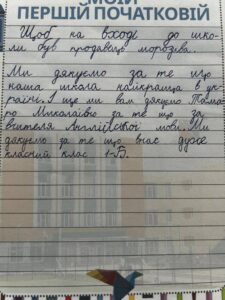 МОЇЙ
ПЕРШІЙ ПОЧАТКОВІЙ
Щоб на вході до шко-
ли був продавець морозива.
Ми дякуємо за те що
наша школа найкраща в ук-
раїні. І ще ми вам дякуємо Тама-
ро Миколаївно за те що за
вчителя Англійської мови. Ми
дякуємо за те що внас дуже
класний клас 1-В.